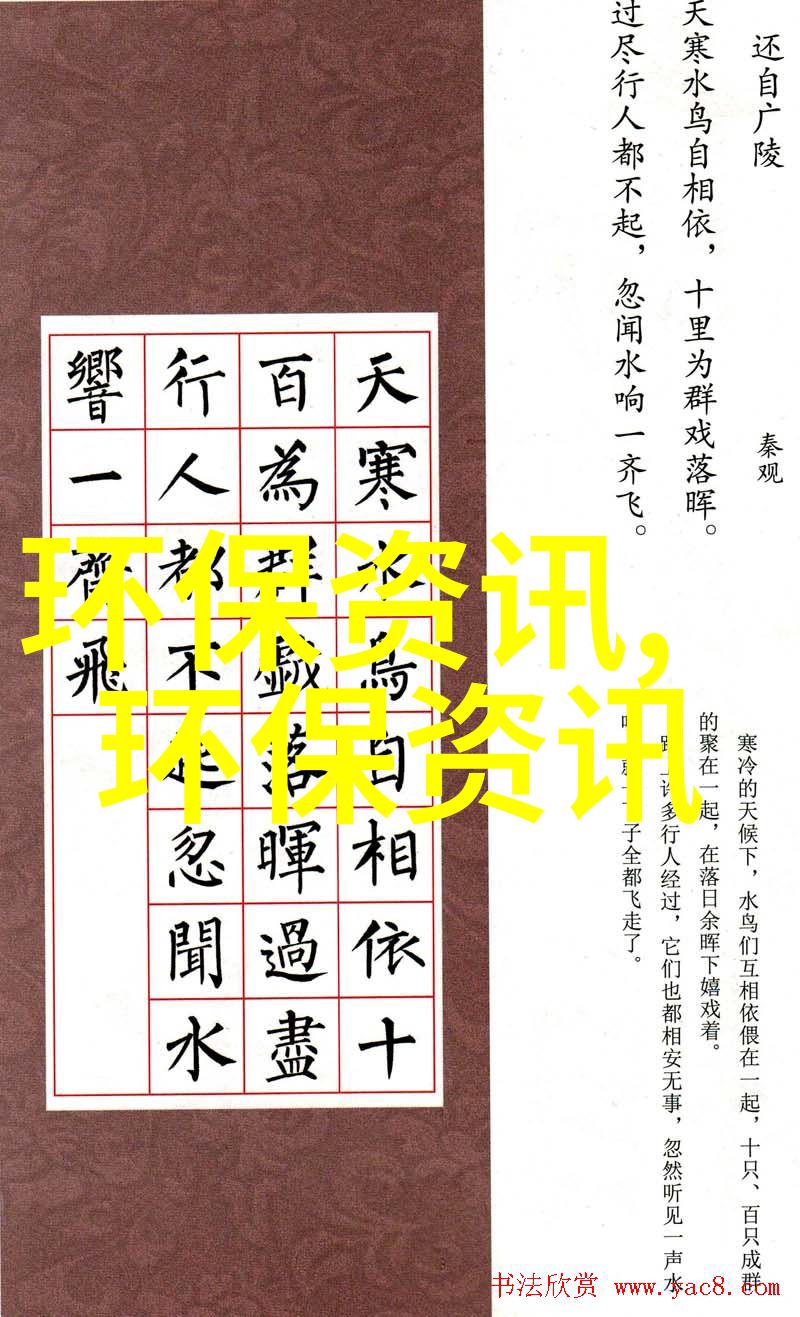 还自广陵
秦观
天寒水鸟自相依，十里为群戏落晖。
过尽行人都不起，忽闻水响一齐飞。
天寒水鳥自相依十
百為群戲落暉過盡
行人都不起忽聞水
響一齊飛
环保资讯,
环保资讯
寒冷的天候下，水鸟们互相依偎在一起，十只、百只成群
的聚在一起，在落日余晖下嬉戏着。
许多行人经过，它们也都相安无事，忽然听见一声水
子全都飞走了。
书法欣赏 www.yac8.com